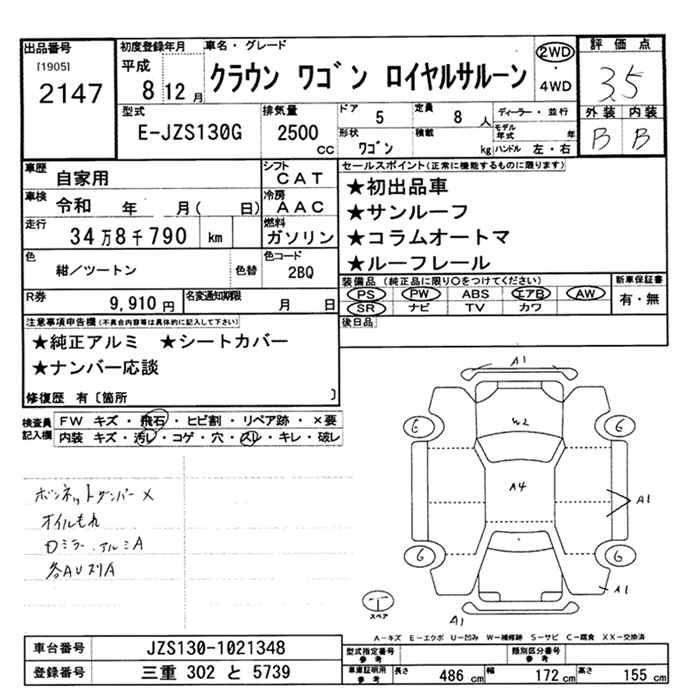 出品番号
[1905]
2147
初度登録年月
平成
8 12月
車名・グレード
クラウン ワゴン ロイヤルサルーン
2WD
・
4WD
評価点
3.5
外装 内装
B B
型式
E-JZS130G
排気量
2500 cc
ドア 5
定員 8 人
ディーラー・並行
モデル年式 年
形状 ワゴン
積載 kg
ハンドル 左・右
車歴
自家用
シフト
CAT
車検
令和 年 月( 日)
冷房
AAC
走行
34万8千790 km
燃料
ガソリン
色
紺/ツートン
色替
色コード
2BQ
R券
9,910円
名変通知期限
月 日
セールスポイント(正常に機能するものに限ります)
★初出品車
★サンルーフ
★コラムオートマ
★ルーフレール
装備品(純正品に限り○をつけてください)
PS PW ABS エアB AW
SR ナビ TV カワ
新車保証書
有・無
後日品
注意事項申告欄(不具合内容等は具体的に記入して下さい)
★純正アルミ ★シートカバー
★ナンバー応談
修復歴 有〔箇所 〕
検査員記入欄
FW キズ・飛石・ヒビ割・リペア跡・×要
内装 キズ・汚レ・コゲ・穴・スレ・キレ・破レ
ボンネットダンパー×
オイルもれ
ロミラー、アルミA
各AUスリA
A1
W2
6 6
A4
A1
6 6
A1
A1
T
スペア
A-キズ E-エクボ U-凹み W-補修跡 S-サビ C-腐食 XX-交換済
車台番号
JZS130-1021348
登録番号
三重 302 と 5739
型式指定番号
参考
類別区分番号
参考
車庫証明用
参考
長さ 486 cm
幅 172 cm
高さ 155 cm